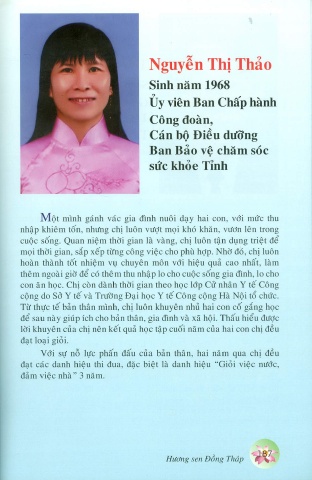 Nguyễn Thị Thảo
Sinh năm 1968
Ủy viên Ban Chấp hành
Công đoàn,
Cán bộ Điều dưỡng
Ban Bảo vệ chăm sóc
sức khỏe Tỉnh
Một mình gánh vác gia đình nuôi dạy hai con, với mức thu
nhập khiêm tốn, nhưng chị luôn vượt mọi khó khăn, vươn lên trong
cuộc sống. Quan niệm thời gian là vàng, chị luôn tận dụng triệt để
mọi thời gian, sắp xếp từng công việc cho phù hợp. Nhờ đó, chị luôn
hoàn thành tốt nhiệm vụ chuyên môn với hiệu quả cao nhất, làm
thêm ngoài giờ để có thêm thu nhập lo cho cuộc sống gia đình, lo cho
con ăn học. Chị còn dành thời gian theo học lớp Cử nhân Y tế Công
cộng do Sở Y tế và Trường Đại học Y tế Công cộng Hà Nội tổ chức.
Từ thực tế bản thân mình, chị luôn khuyên nhủ hai con cố gắng học
để sau này giúp ích cho bản thân, gia đình và xã hội. Thấu hiểu được
lời khuyên của chị nên kết quả học tập cuối năm của hai con chị đều
đạt loại giỏi.
Với sự nỗ lực phấn đấu của bản thân, hai năm qua chị đều
đạt các danh hiệu thi đua, đặc biệt là danh hiệu “Giỏi việc nước,
đảm việc nhà” 3 năm.
Hương sen Đồng Tháp
187